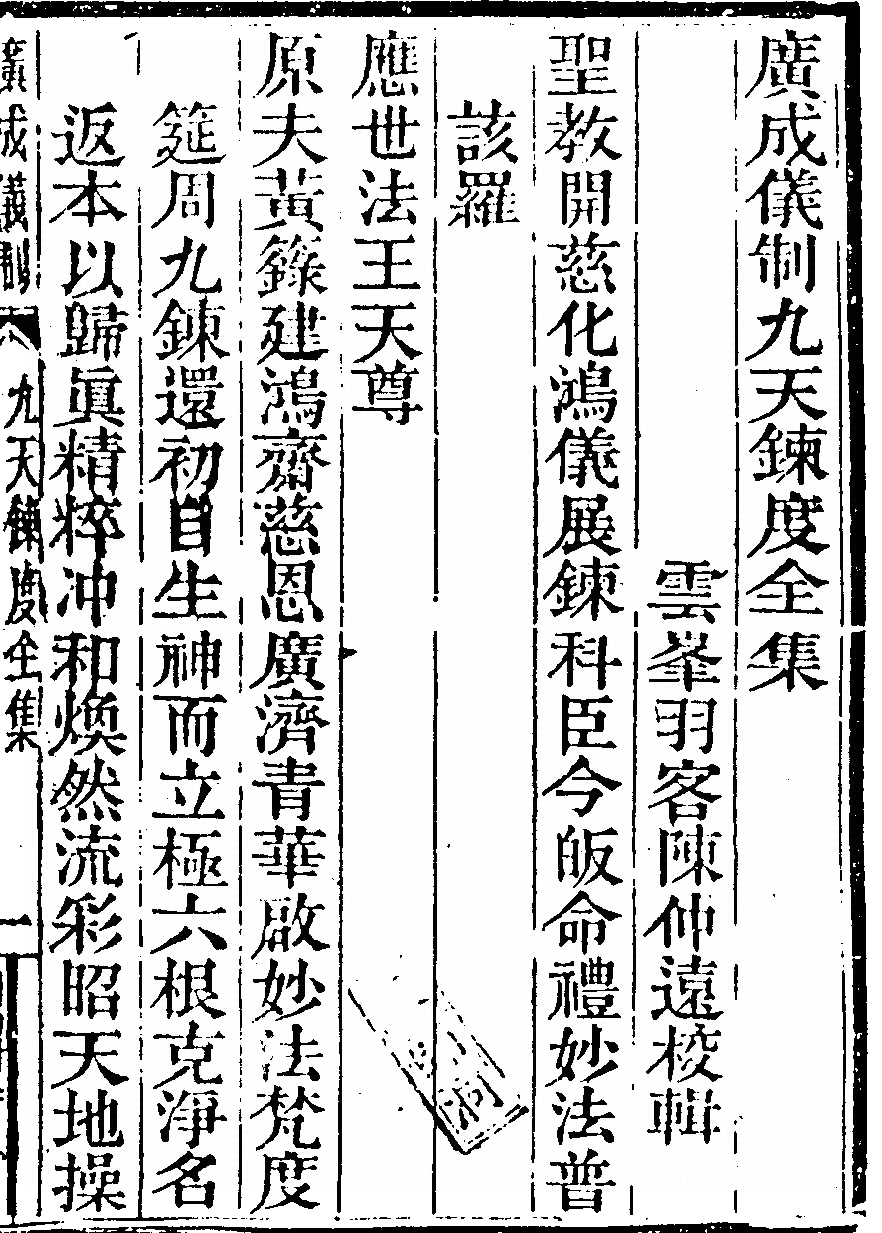 廣成儀制九天鍊度全集
雲峯羽客陳仲遠校輯
聖教開慈化鴻儀展鍊科臣今皈命禮妙法普
該羅
應世法王天尊
原夫黃籙建鴻齋慈恩廣濟青華啟妙法梵度
筵周九鍊還初自生神而立極六根克淨名
返本以歸眞精粹冲和煥然流彩昭天地操
廣成儀制 九天鍊度全集 一